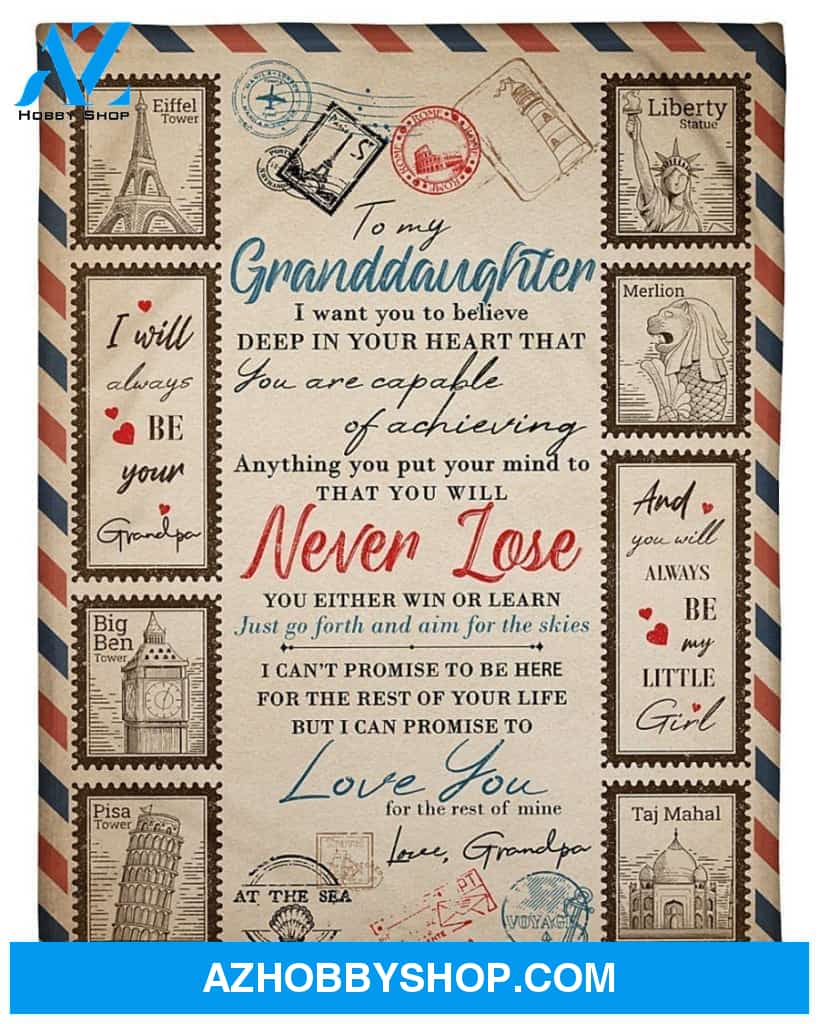 AZ
Hobby Shop
Eiffel
Tower
ROME
ROME
ROME
ROME
Liberty
Statue
To my
Granddaughter
I want you to believe
DEEP IN YOUR HEART THAT
You are capable
of achieving
Anything you put your mind to
THAT YOU WILL
Never Lose
YOU EITHER WIN OR LEARN
Just go forth and aim for the skies
I CAN'T PROMISE TO BE HERE
FOR THE REST OF YOUR LIFE
BUT I CAN PROMISE TO
Love You
for the rest of mine
Love, Grandpa
I will
always
BE
your
Grandpa
Merlion
And
you will
ALWAYS
BE
my
LITTLE
Girl
Big
Ben
Tower
Pisa
Tower
Taj Mahal
AT THE SEA
VOYAGE
AZHOBBYSHOP.COM